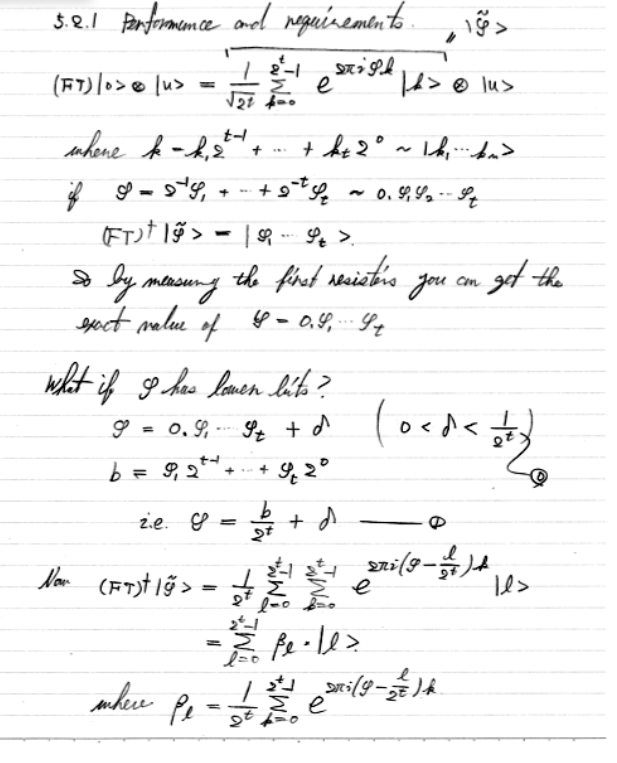 5.2.1 Performance and requirements. „ |φ̃ >
(FT)|0> ⊗ |u> = 1/√2^t Σ_{k=0}^{2^t-1} e^{2πiφk} |k> ⊗ |u>
where k = k₁2^{t-1} + ... + k_t 2^0 ~ |k₁...k_n>
if φ = 2^{-1}φ₁ + ... + 2^{-t}φ_t ~ 0.φ₁φ₂...φ_t
(FT)† |φ̃ > = |φ₁ ... φ_t >.
So by measuring the first resistors you can get the
exact value of φ = 0.φ₁...φ_t
What if φ has lower bits?
φ = 0.φ₁...φ_t + δ ( 0 < δ < 1/2^t ) ⓪
b = φ₁2^{t-1} + ... + φ_t 2^0
i.e. φ = b/2^t + δ —— ①
Now (FT)† |φ̃ > = 1/2^t Σ_{l=0}^{2^t-1} Σ_{k=0}^{2^t-1} e^{2πi(φ - l/2^t)k} |l>
= Σ_{l=0}^{2^t-1} β_l · |l>
where β_l = 1/2^t Σ_{k=0}^{2^t-1} e^{2πi(φ - l/2^t)k}